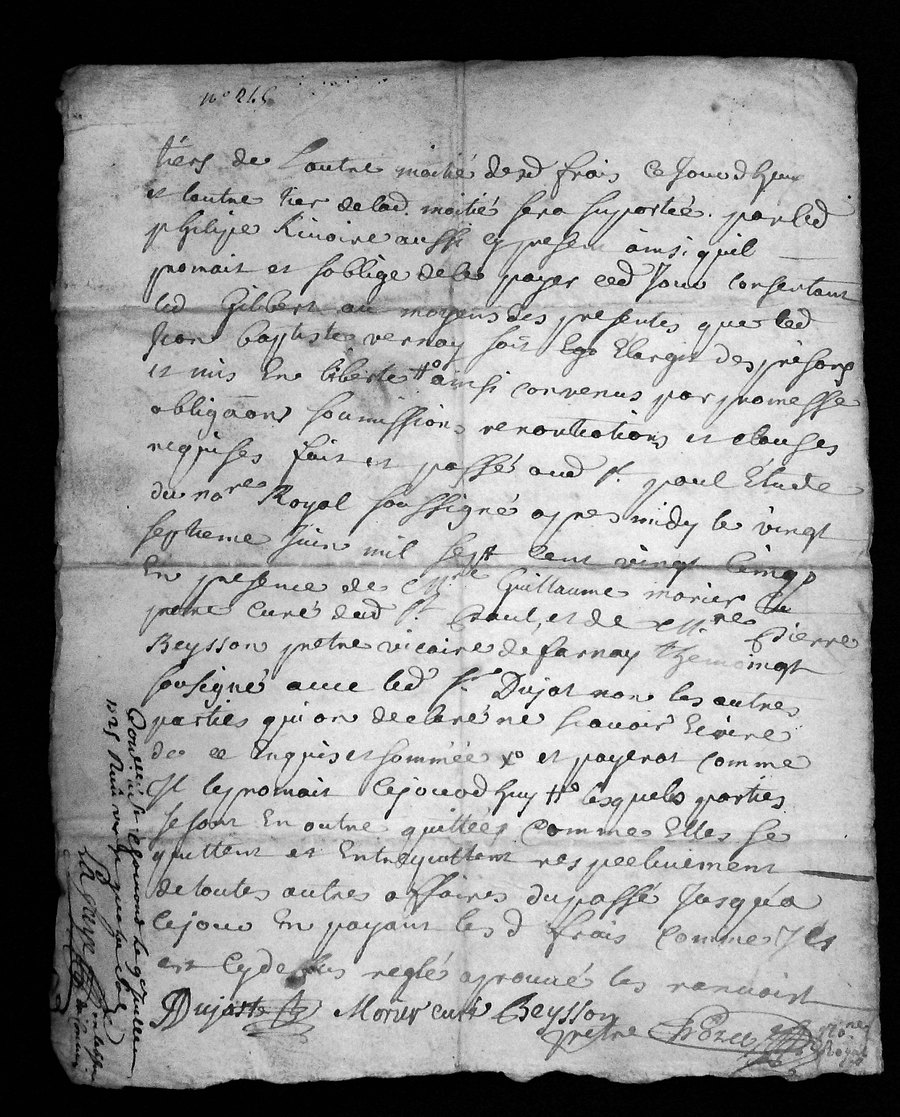 n° 245
tiers de lautre moitié desd frais cejourdhuy
et lautre tier de lad. moitié sera suportée par led
philipe Rivoire aussi cy present ainsi quil
promait et soblige de les payer ced Jour consentant
led Gilbert au moyens des presentes que led
Jean baptiste vernay soit Elargis des prisons
et mis En liberte # ainsi convenus par promesse
obligaons soumissions renontiations et clauses
requises fait et passé aud St. paul Etude
du nore Royal soussigné apres midy le vingt
septieme Juin mil sept cent vingt cinq
En presence de Mre Guillaume morier
pretre curé dud St. paul, et de Mre Pierre
Beysson pretre vicaire de farnay themoings
sousigné avec led Sr Dujat non les autres
parties qui on declaré ne scavoir Ecrire
de ce Enquis et sommée x° et payerat comme
Il le promait cejourdhuy # lesquels parties
se sont En outre quittées comme Elles se
quittent et Entrequittent respectivement
de toutes autres affaires du passé Jusqua
cejour En payant les d frais comme Ils
est cy dessus reglé aprouvé les renvoist
Dujast Morier curé Beysson
pretre
nore
Royal